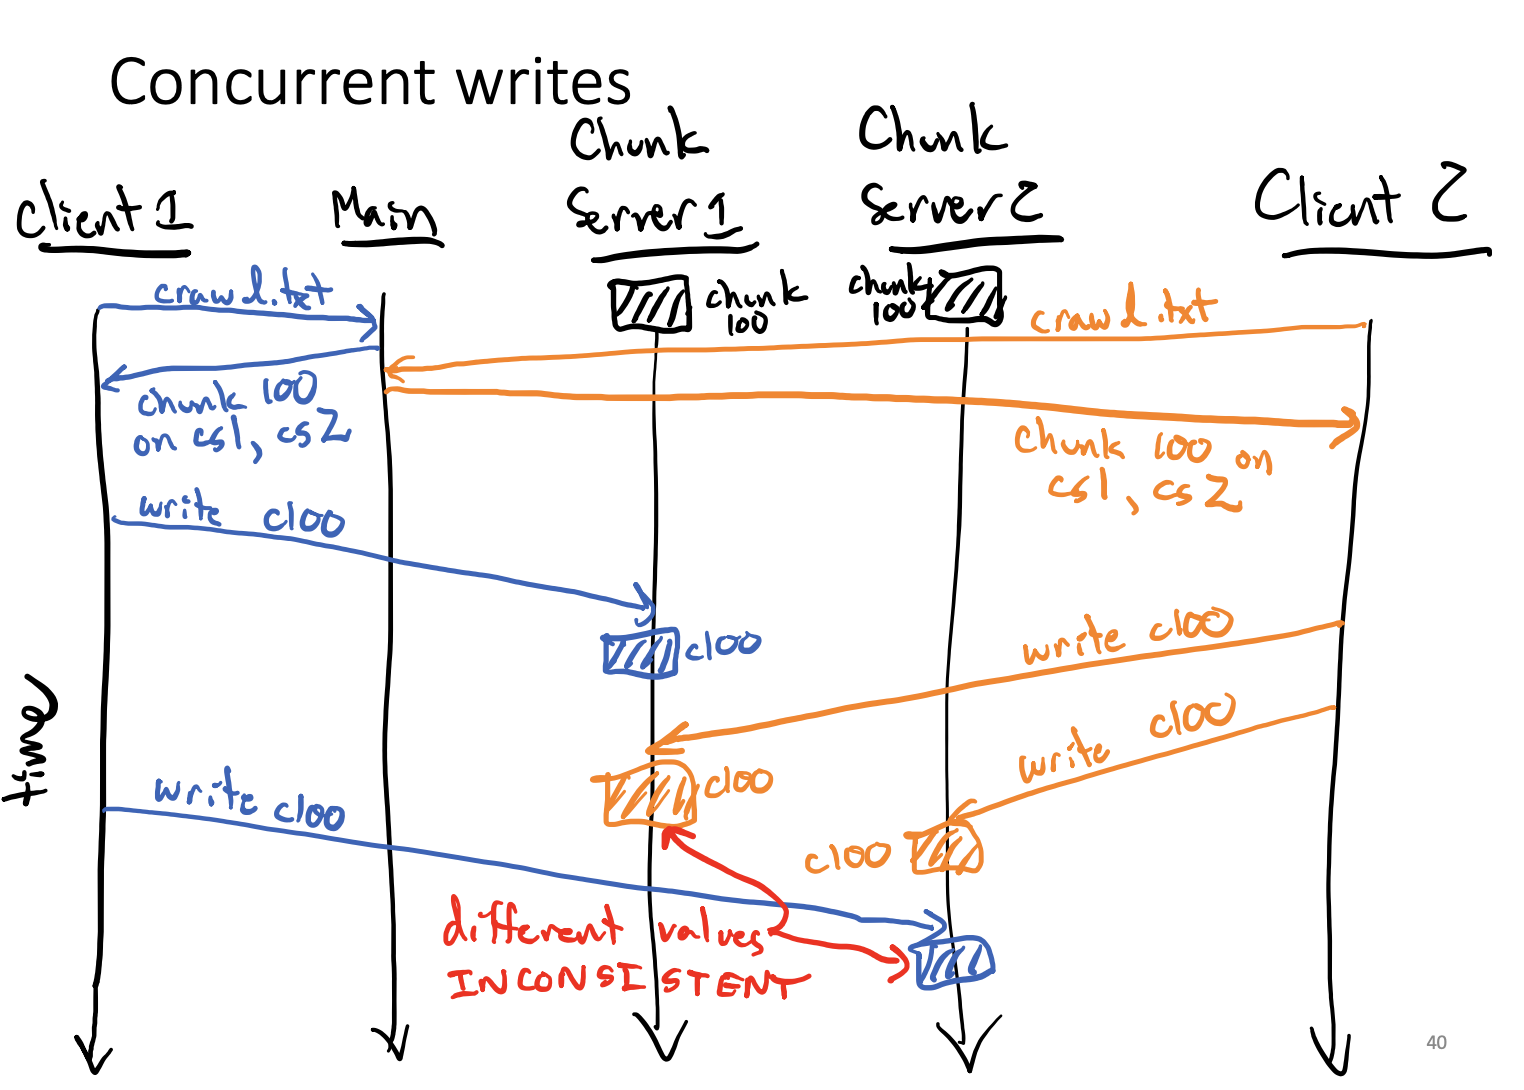 Concurrent writes
Client 1
Main
Chunk
Server 1
Chunk
Server 2
Client 2
chunk
100
chunk
100
crawl.txt
crawl.txt
chunk 100
on cs1, cs2
chunk 100 on
cs1, cs2
write c100
c100
write c100
write c100
c100
time
write c100
c100
different values
INCONSISTENT
40